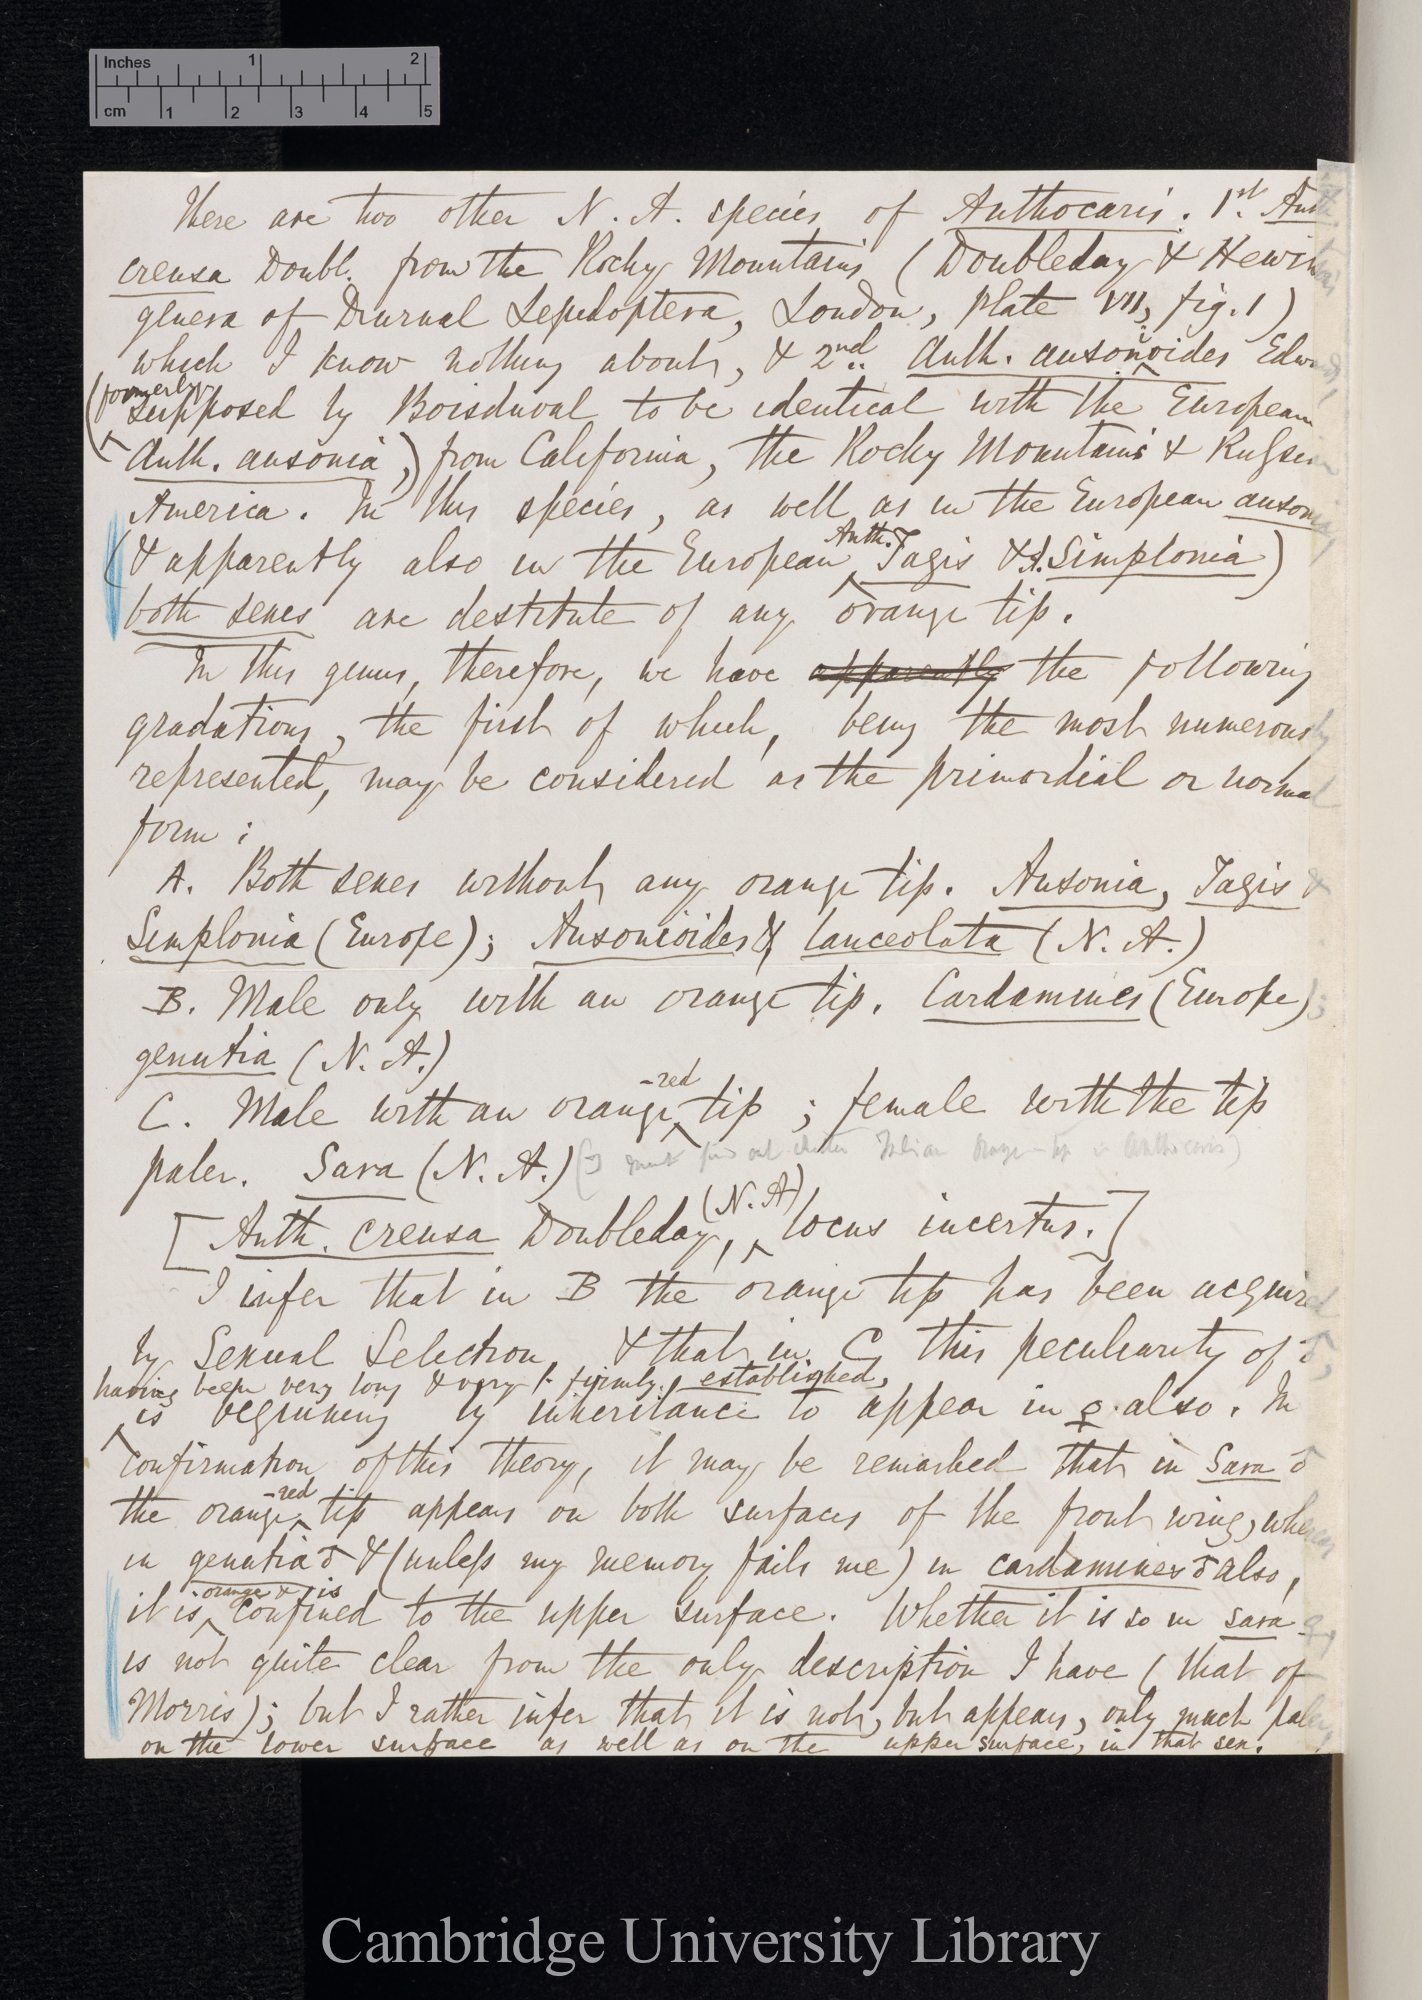 Inches 1 2
cm 1 2 3 4 5
There are two other N. A. species of Anthocaris. 1st. Anth.
creusa Doubl. from the Rocky Mountains (Doubleday & Hewitson's
genera of Diurnal Lepidoptera, London, plate VII, fig. 1)
which I know nothing about, & 2nd. Anth. ausonoides Edwards,
(formerly
supposed by Boisduval to be identical with the European
Anth. ausonia,) from California, the Rocky Mountains & Russian
America. In this species, as well as in the European ausonia,
Anth.
(& apparently also in the European Tagis & A. Simplonia)
both sexes are destitute of any orange tip.
In this genus, therefore, we have apparently the following
gradations, the first of which, being the most numerously
represented, may be considered as the primordial or normal
form:
A. Both sexes without any orange tip. Ausonia, Tagis &
Simplonia (Europe); Ausonioides & lanceolata (N. A.)
B. Male only with an orange tip. Cardamines (Europe);
genutia (N. A.)
-red
C. Male with an orange tip; female with the tip
paler. Sara (N. A.) (I must find out whether Indian Orange-tip is Anthocaris)
(N. A)
[Anth. creusa Doubleday, locus incertus.]
I infer that in B the orange tip has been acquired
by Sexual Selection, & that in C, this peculiarity of ♂,
having been very long & very firmly established,
is beginning by inheritance to appear in ♀ also. In
confirmation of this theory, it may be remarked that in Sara ♂
-red
the orange tip appears on both surfaces of the front wing, whereas
in genutia ♂ & (unless my memory fails me) in cardamines ♂ also,
orange & is
it is confined to the upper surface. Whether it is so in sara ♀,
is not quite clear from the only description I have (that of
Morris); but I rather infer that it is not, but appears, only much paler,
on the lower surface as well as on the upper surface, in that sex.
Cambridge University Library